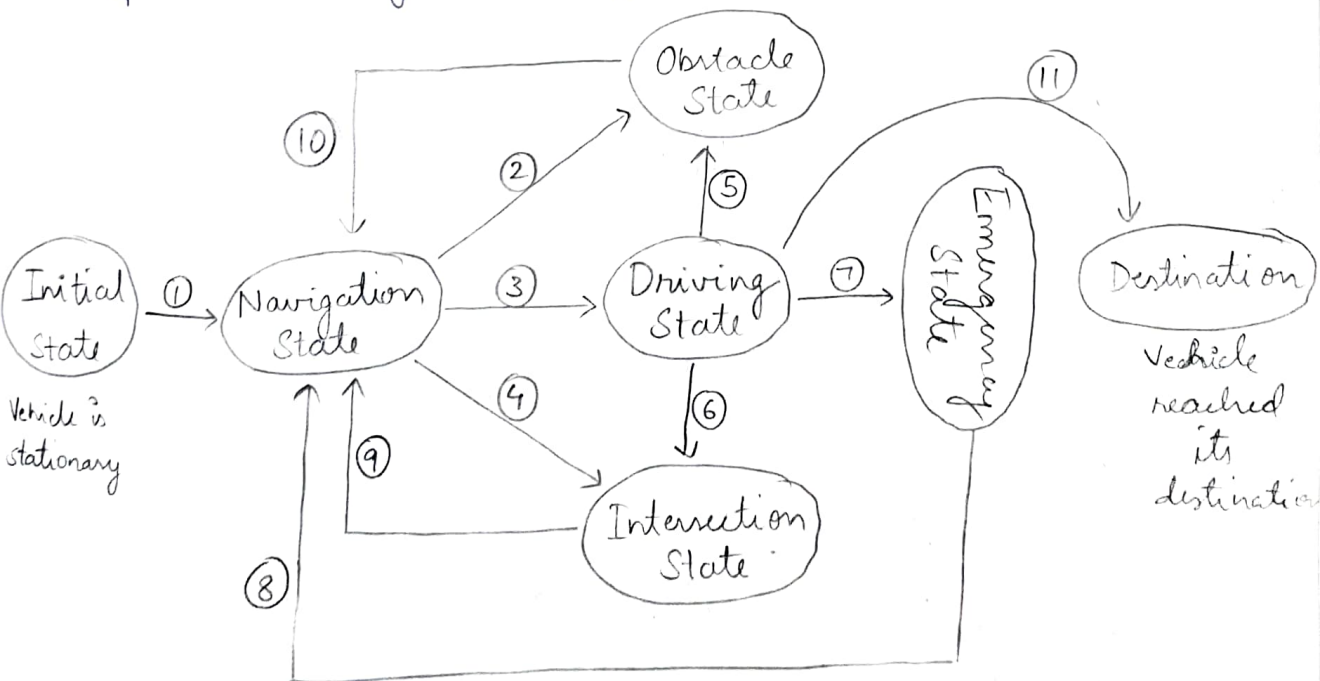 Obstacle
State
11
10
2
5
Emergency
State
Initial
State
1
Navigation
State
3
Driving
State
7
Destination
Vehicle is
stationary
4
6
9
Vechicle
reached
its
destination
Intersection
State
8